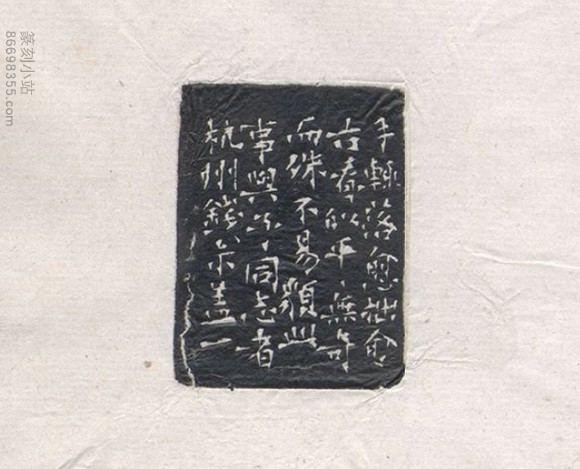 手輕落愈拙愈
古看似平平無奇
而殊不易顧此
事與余同志者
杭州錢尗盖一
篆刻小站
86698355.com